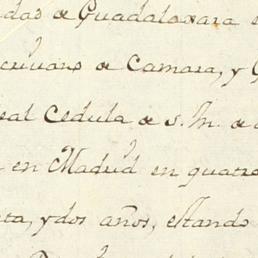 das de Guadalaxara
crivano de Camara, y
eal Cedula de S. M. de
en Madrid en quatro
ta, y dos años, estando